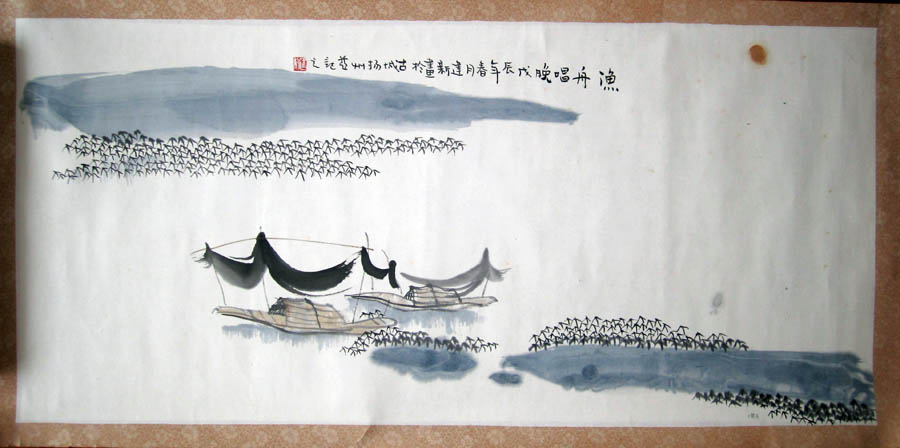 漁舟唱晚戊辰年春月建新畫於古城揚州並記之